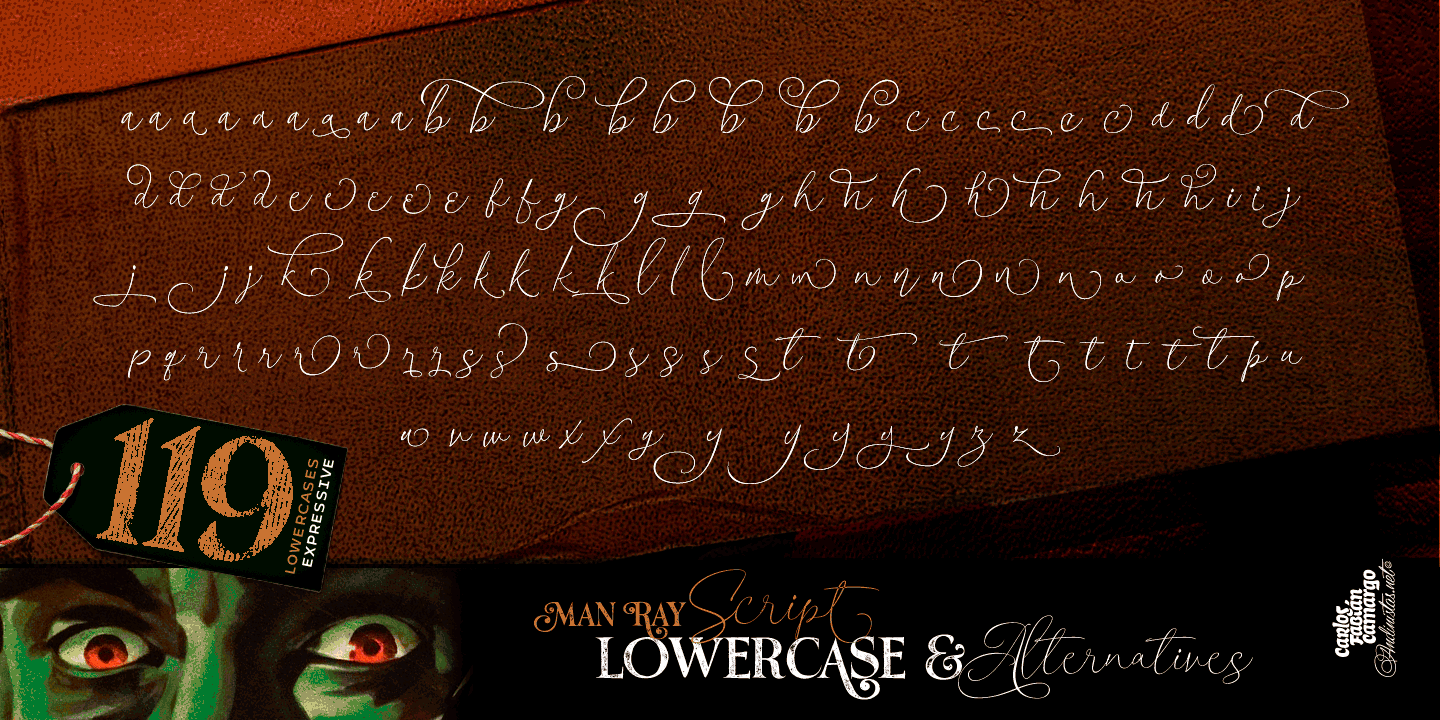 a a a a a a a a a b b b b b b b b c c c c c c d d d d
d d d d e e e e e f f g g g g h h h h h h h h i i j
j j j k k k k k k k l l l m m n n n n n n o o o o p
p q r r r r r r r s s s s s s s t t t t t t t t p u
u v w w x x y y y y y y z z
119
LOWERCASES
EXPRESSIVE
MAN RAY Script
LOWERCASE & Alternatives
carlos
fabián
camargo
Andinistas.net©